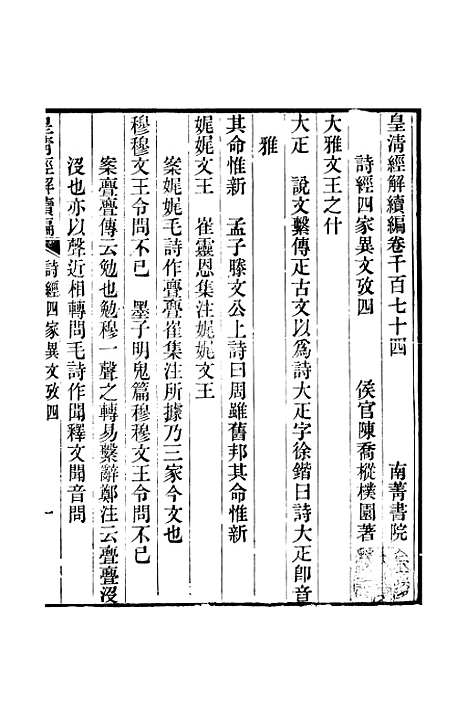 皇清經解續編卷千百七十四 南菁書院
詩經四家異文攷四 侯官陳喬樅樸園著
大雅文王之什
大疋 說文繫傳疋古文以爲詩大疋字徐鍇曰詩大疋卽音
雅
其命惟新 孟子滕文公上詩曰周雖舊邦其命惟新
娓娓文王 崔靈恩集注娓娓文王
案娓娓毛詩作亹亹崔集注所據乃三家今文也
穆穆文王令問不已 墨子明鬼篇穆穆文王令問不已
案亹亹傳云勉也勉穆一聲之轉易繫辭鄭注云亹亹沒
沒也亦以聲近相轉問毛詩作聞釋文聞音問
皇清經解續編 詩經四家異文攷四 一